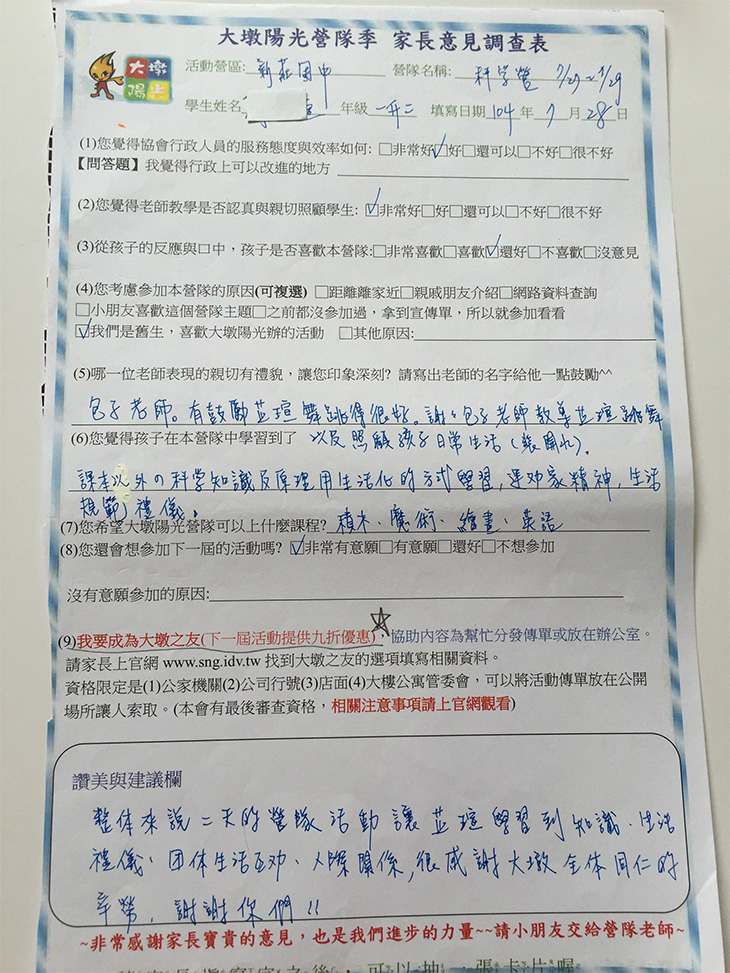 大墩陽光營隊季 家長意見調查表
大墩
陽光
活動營區: 新莊國中 營隊名稱: 科學營 7/27~7/29
學生姓名 年級 一升二 填寫日期 104 年 7 月 28 日
(1)您覺得協會行政人員的服務態度與效率如何: □非常好☑好□還可以□不好□很不好
【問答題】我覺得行政上可以改進的地方
(2)您覺得老師教學是否認真與親切照顧學生: ☑非常好□好□還可以□不好□很不好
(3)從孩子的反應與口中，孩子是否喜歡本營隊:□非常喜歡□喜歡☑還好□不喜歡□沒意見
(4)您考慮參加本營隊的原因(可複選) □距離離家近□親戚朋友介紹□網路資料查詢
□小朋友喜歡這個營隊主題□之前都沒參加過，拿到宣傳單，所以就參加看看
☑我們是舊生，喜歡大墩陽光辦的活動 □其他原因:
(5)哪一位老師表現的親切有禮貌，讓您印象深刻? 請寫出老師的名字給他一點鼓勵^^
包子老師。有鼓勵芷瑄舞跳得很好。謝々包子老師教導芷瑄跳舞
(6)您覺得孩子在本營隊中學習到了 以及照顧孩子日常生活(裝開水).
課本以外の科學知識及原理用生活化的方式學習,運动家精神,生活
規範禮儀。
(7)您希望大墩陽光營隊可以上什麼課程? 積木、魔術、繪畫、英語
(8)您還會想參加下一屆的活動嗎? ☑非常有意願□有意願□還好□不想參加
沒有意願參加的原因:
(9)我要成為大墩之友(下一屆活動提供九折優惠)，協助內容為幫忙分發傳單或放在辦公室。
請家長上官網 www.sng.idv.tw 找到大墩之友的選項填寫相關資料。
資格限定是(1)公家機關(2)公司行號(3)店面(4)大樓公寓管委會，可以將活動傳單放在公開
場所讓人索取。(本會有最後審查資格，相關注意事項請上官網觀看)
讚美與建議欄
整体來說二天的營隊活動讓芷瑄學習到知識、生活
禮儀、团体生活互动、人際関係,很感謝大墩全体同仁的
辛勞,謝謝你們!!
~非常感謝家長寶貴的意見，也是我們進步的力量~~請小朋友交給營隊老師~